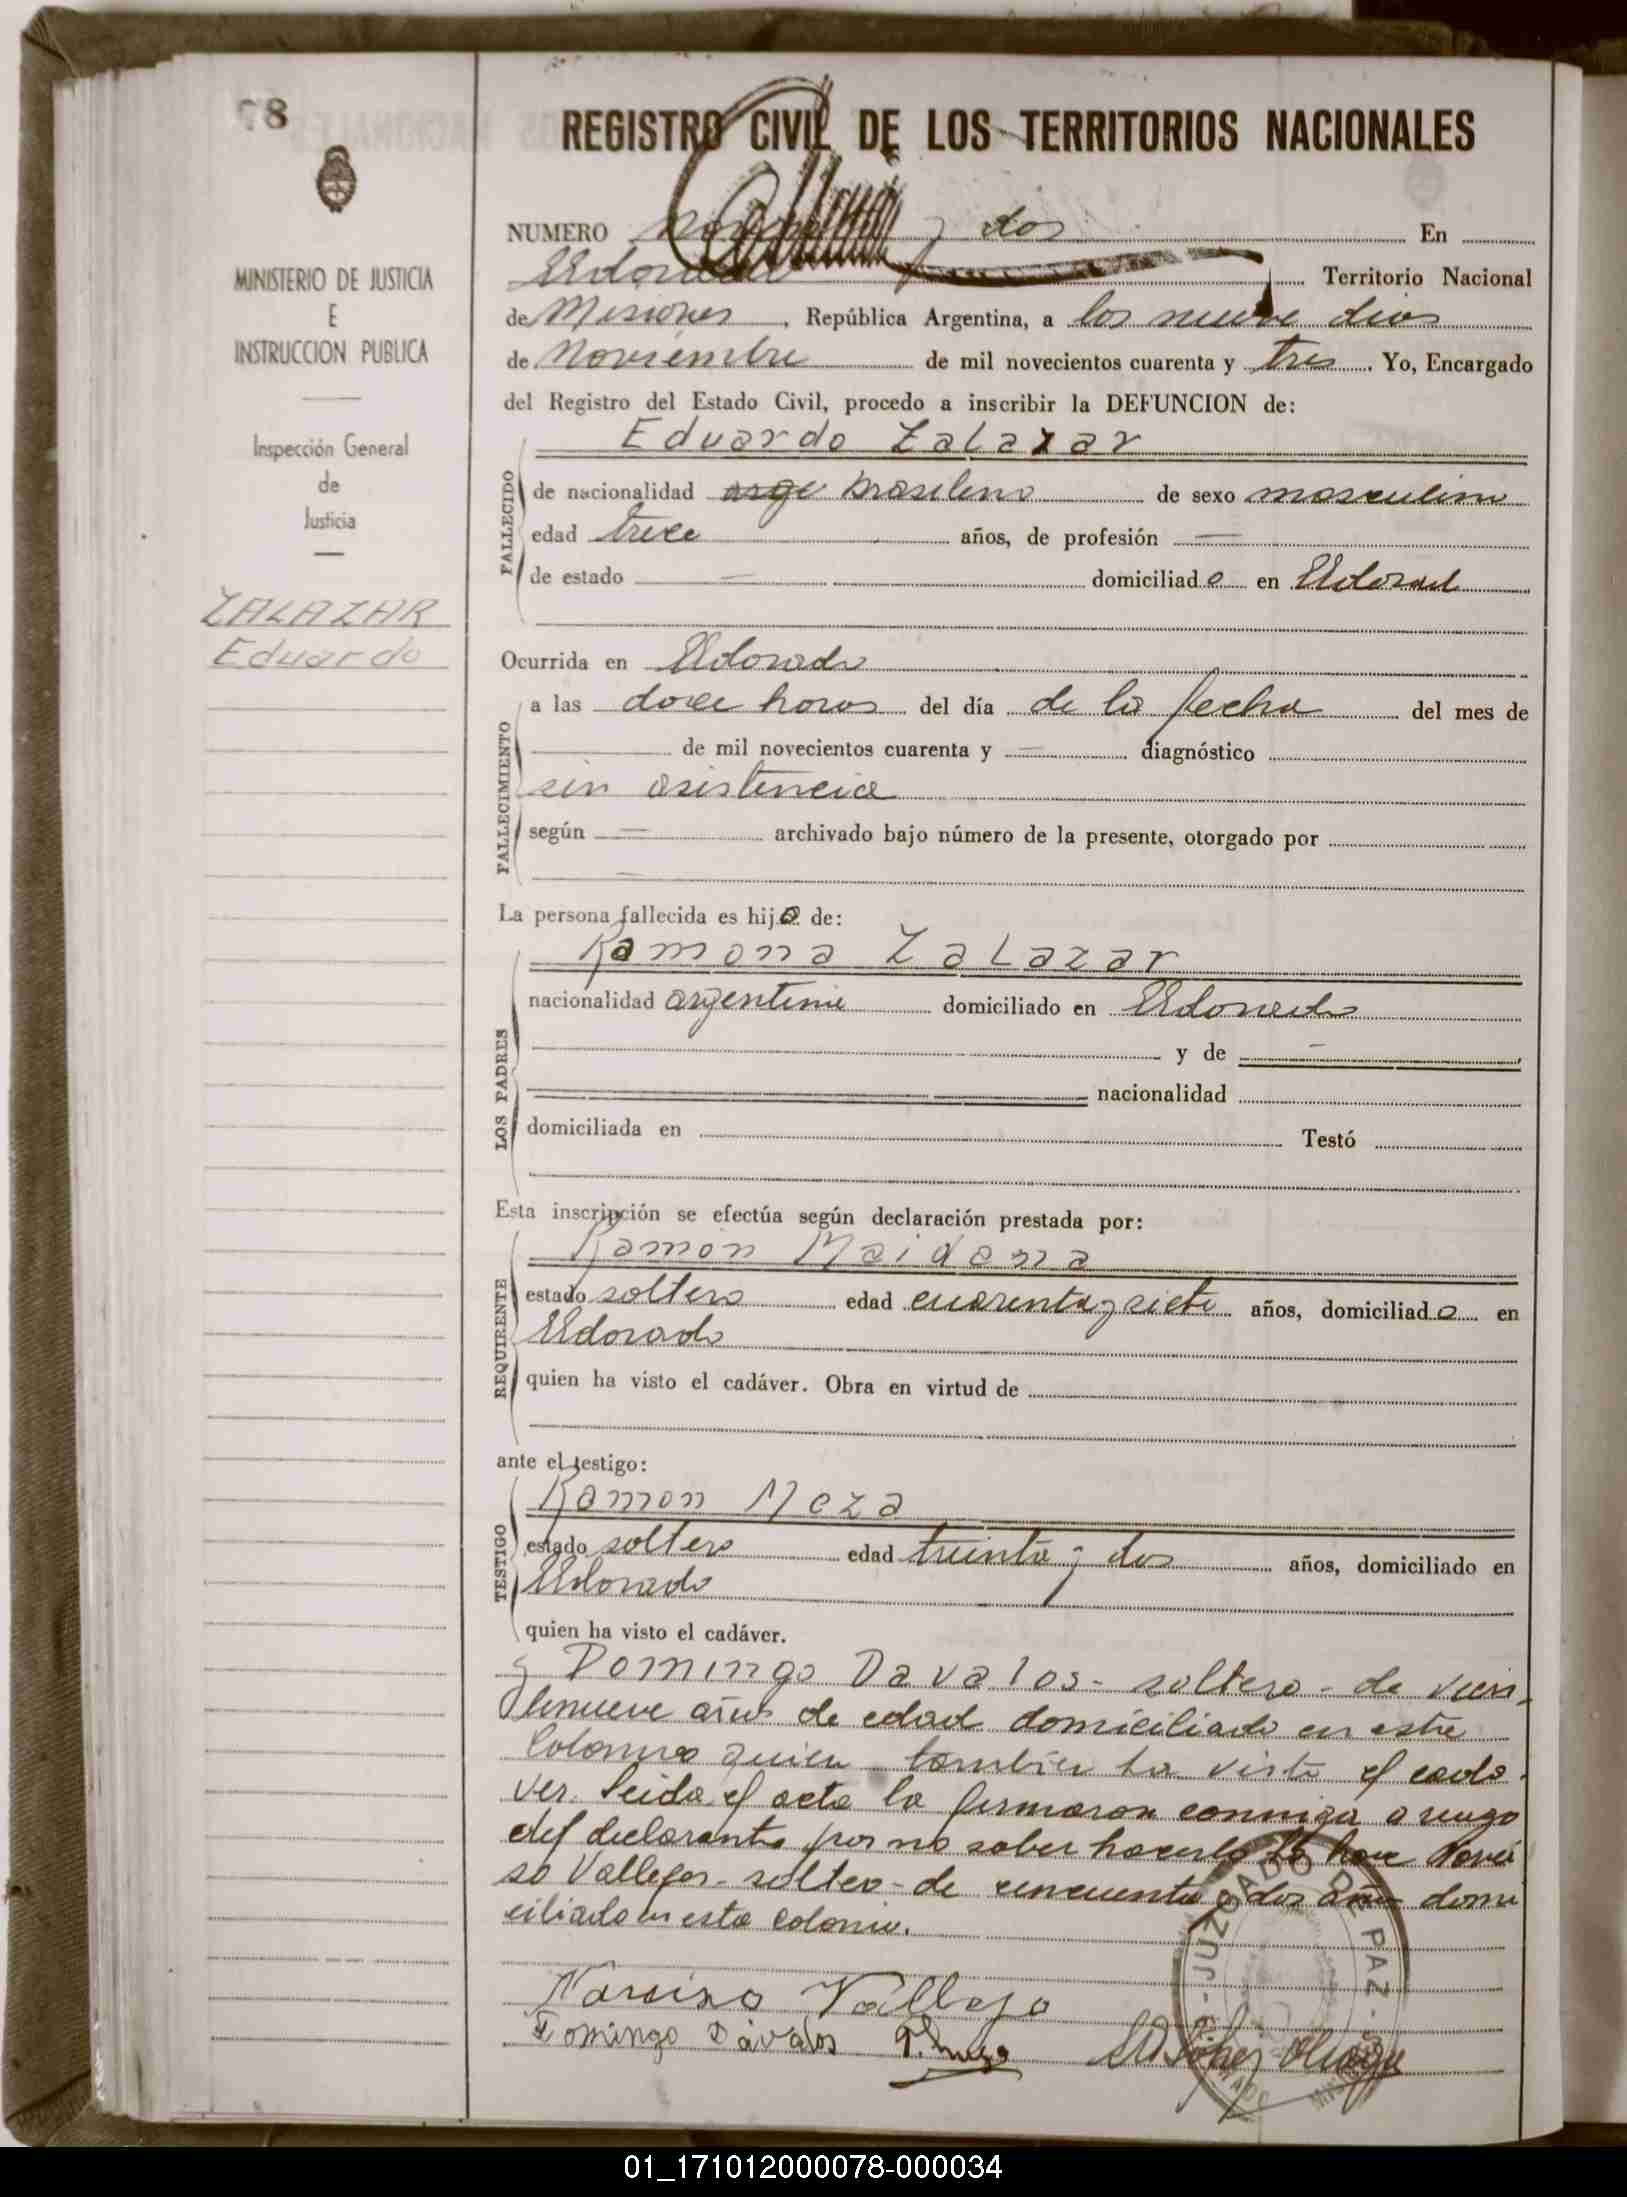 78
REGISTRO CIVIL DE LOS TERRITORIOS NACIONALES
MINISTERIO DE JUSTICIA
E
INSTRUCCION PUBLICA
Inspección General
de
Justicia
ZALAZAR
Eduardo
NUMERO y dos En
Eldorado Territorio Nacional
de Misiones, República Argentina, a los nueve dias
de Noviembre de mil novecientos cuarenta y tres. Yo, Encargado
del Registro del Estado Civil, procedo a inscribir la DEFUNCION de:
Eduardo Zalazar
FALLECIDO
de nacionalidad arge brasilena de sexo masculino
edad trece años, de profesión —
de estado — domiciliado en Eldorado
Ocurrida en Eldorado
FALLECIMIENTO
a las doce horas del día de la fecha del mes de
de mil novecientos cuarenta y — diagnóstico
sin asistencia
según — archivado bajo número de la presente, otorgado por
—
La persona fallecida es hijo de:
Ramona Zalazar
LOS PADRES
nacionalidad argentina domiciliado en Eldorado
y de —
nacionalidad
domiciliada en Testó
Esta inscripción se efectúa según declaración prestada por:
Ramón Maidana
REQUIRENTE
estado soltero edad cuarenta y siete años, domiciliado en
Eldorado
quien ha visto el cadáver. Obra en virtud de
ante el testigo:
Ramon Meza
TESTIGO
estado soltero edad treinta y dos años, domiciliado en
Eldorado
quien ha visto el cadáver.
y Domingo Davalos - soltero - de vein-
tinueve años de edad domiciliado en esta
Colonia quien tambien ha visto el cada-
ver. Leida el acta la firmaron conmigo a ruego
del declarante por no saber hacerlo lo hace Narci
so Vallejos - soltero - de cincuenta y dos años domi
ciliado en esta colonia.
Narciso Vallejo
Domingo Davalos
JUZGADO DE PAZ
01_171012000078-000034